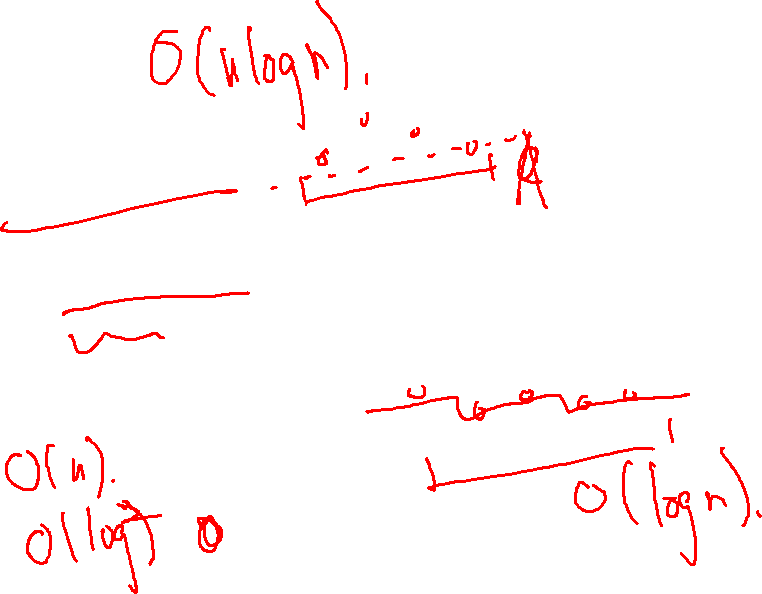 O(n log n).
O(n).
O(log n)
O(log n).